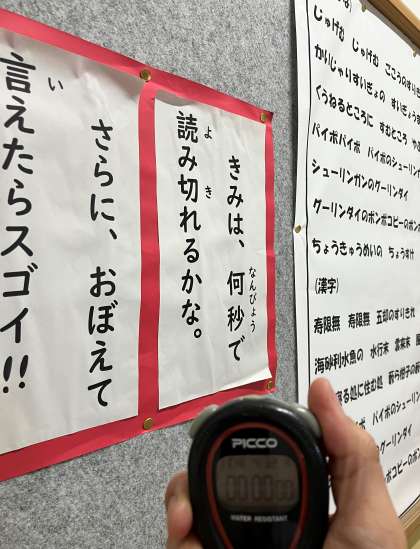 きみは、何秒で
なんびょう
読み切れるかな。
よ
き
さらに、おぼえて
言えたらスゴイ!!
い
じゅげむ じゅげむ ごこうのすりき
かいじゃりすいぎょの すいぎょう
くうねるところに すむところ や
パイポパイポ パイポのシューリン
シューリンガンのグーリンダイ
グーリンダイのポンポコピーのポン
ちょうきゅうめいの ちょうすけ
(漢字)
寿限無 寿限無 五却のすりきれ
海砂利水魚の 水行末 雲来末
る処に住む処 藪ら柑子の
パイポのシューリン
グーリンダイ
ポンポコピーのポン
PICCO
WATER RESISTANT